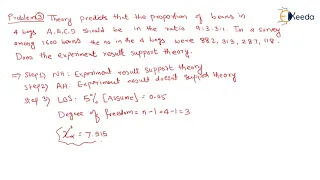 Keeda
Problem② Theory predicts that the proportion of beans in
4 bags A,B,C,D should be in the ratio 9:3:3:1. In a survey
among 1600 beans the no in the 4 bags were 882, 313, 287, 118.
Does the experiment result support theory.
⇒ Step1) NH: Experiment result support theory
Step2) AH: Experiment result doesn't support theory
Step 3) LOS: 5% [Assume] = 0.05
Degree of freedom = n-1 = 4-1 = 3
χ²α = 7.815